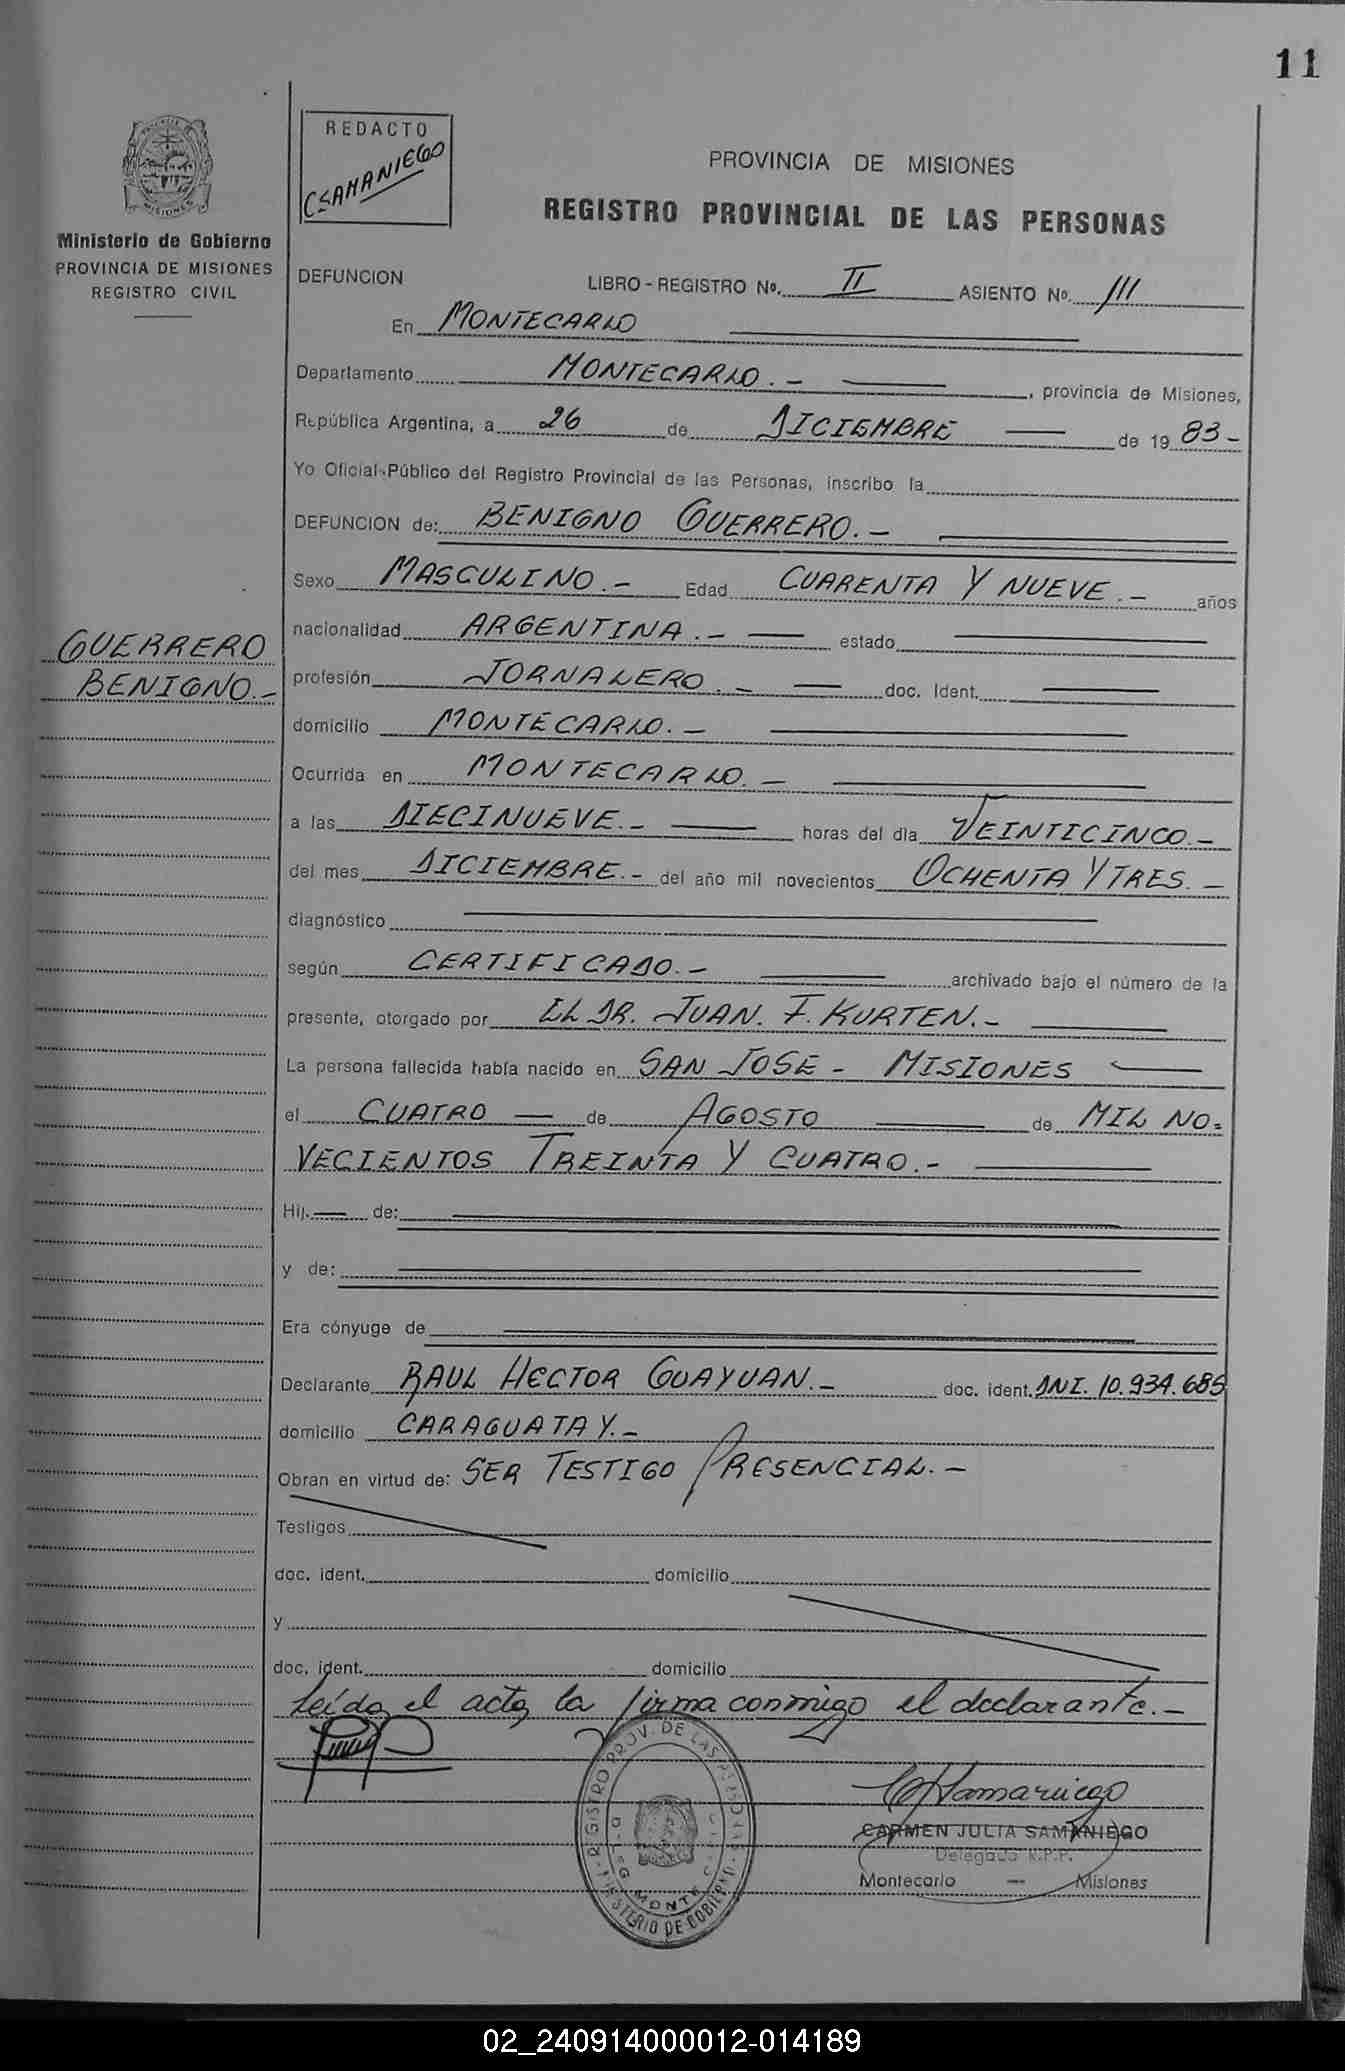 11
REDACTO
CSAMANIEGO
PROVINCIA DE MISIONES
REGISTRO PROVINCIAL DE LAS PERSONAS
MISIONES
Ministerio de Gobierno
PROVINCIA DE MISIONES
REGISTRO CIVIL
DEFUNCION LIBRO - REGISTRO Nº. II ASIENTO Nº. 111
En MONTECARLO
Departamento MONTECARLO.- , provincia de Misiones,
República Argentina, a 26 de DICIEMBRE de 19 83-
Yo Oficial Público del Registro Provincial de las Personas, inscribo la
DEFUNCION de: BENIGNO GUERRERO.-
Sexo MASCULINO.- Edad CUARENTA Y NUEVE.- años
GUERRERO
BENIGNO.-
nacionalidad ARGENTINA.- estado
profesión JORNALERO.- doc. Ident.
domicilio MONTECARLO.-
Ocurrida en MONTECARLO.-
a las DIECINUEVE.- horas del día VEINTICINCO.-
del mes DICIEMBRE.- del año mil novecientos OCHENTA Y TRES.-
diagnóstico
según CERTIFICADO.- archivado bajo el número de la
presente, otorgado por EL DR. JUAN. F. KURTEN.-
La persona fallecida había nacido en SAN JOSE - MISIONES
el CUATRO de AGOSTO de MIL NO=
VECIENTOS TREINTA Y CUATRO.-
Hij. de:
y de:
Era cónyuge de
Declarante RAUL HECTOR GUAYUAN.- doc. ident. DNI. 10.934.685
domicilio CARAGUATAY.-
Obran en virtud de: SER TESTIGO PRESENCIAL.-
Testigos
doc. ident. domicilio
y
doc. ident. domicilio
Leída el acta, la firma conmigo el declarante.-
REGISTRO PROV. DE LAS PERSONAS
MINISTERIO DE GOBIERNO
CSamaniego
CARMEN JULIA SAMANIEGO
Delegada R.P.P.
Montecarlo - Misiones
02_240914000012-014189